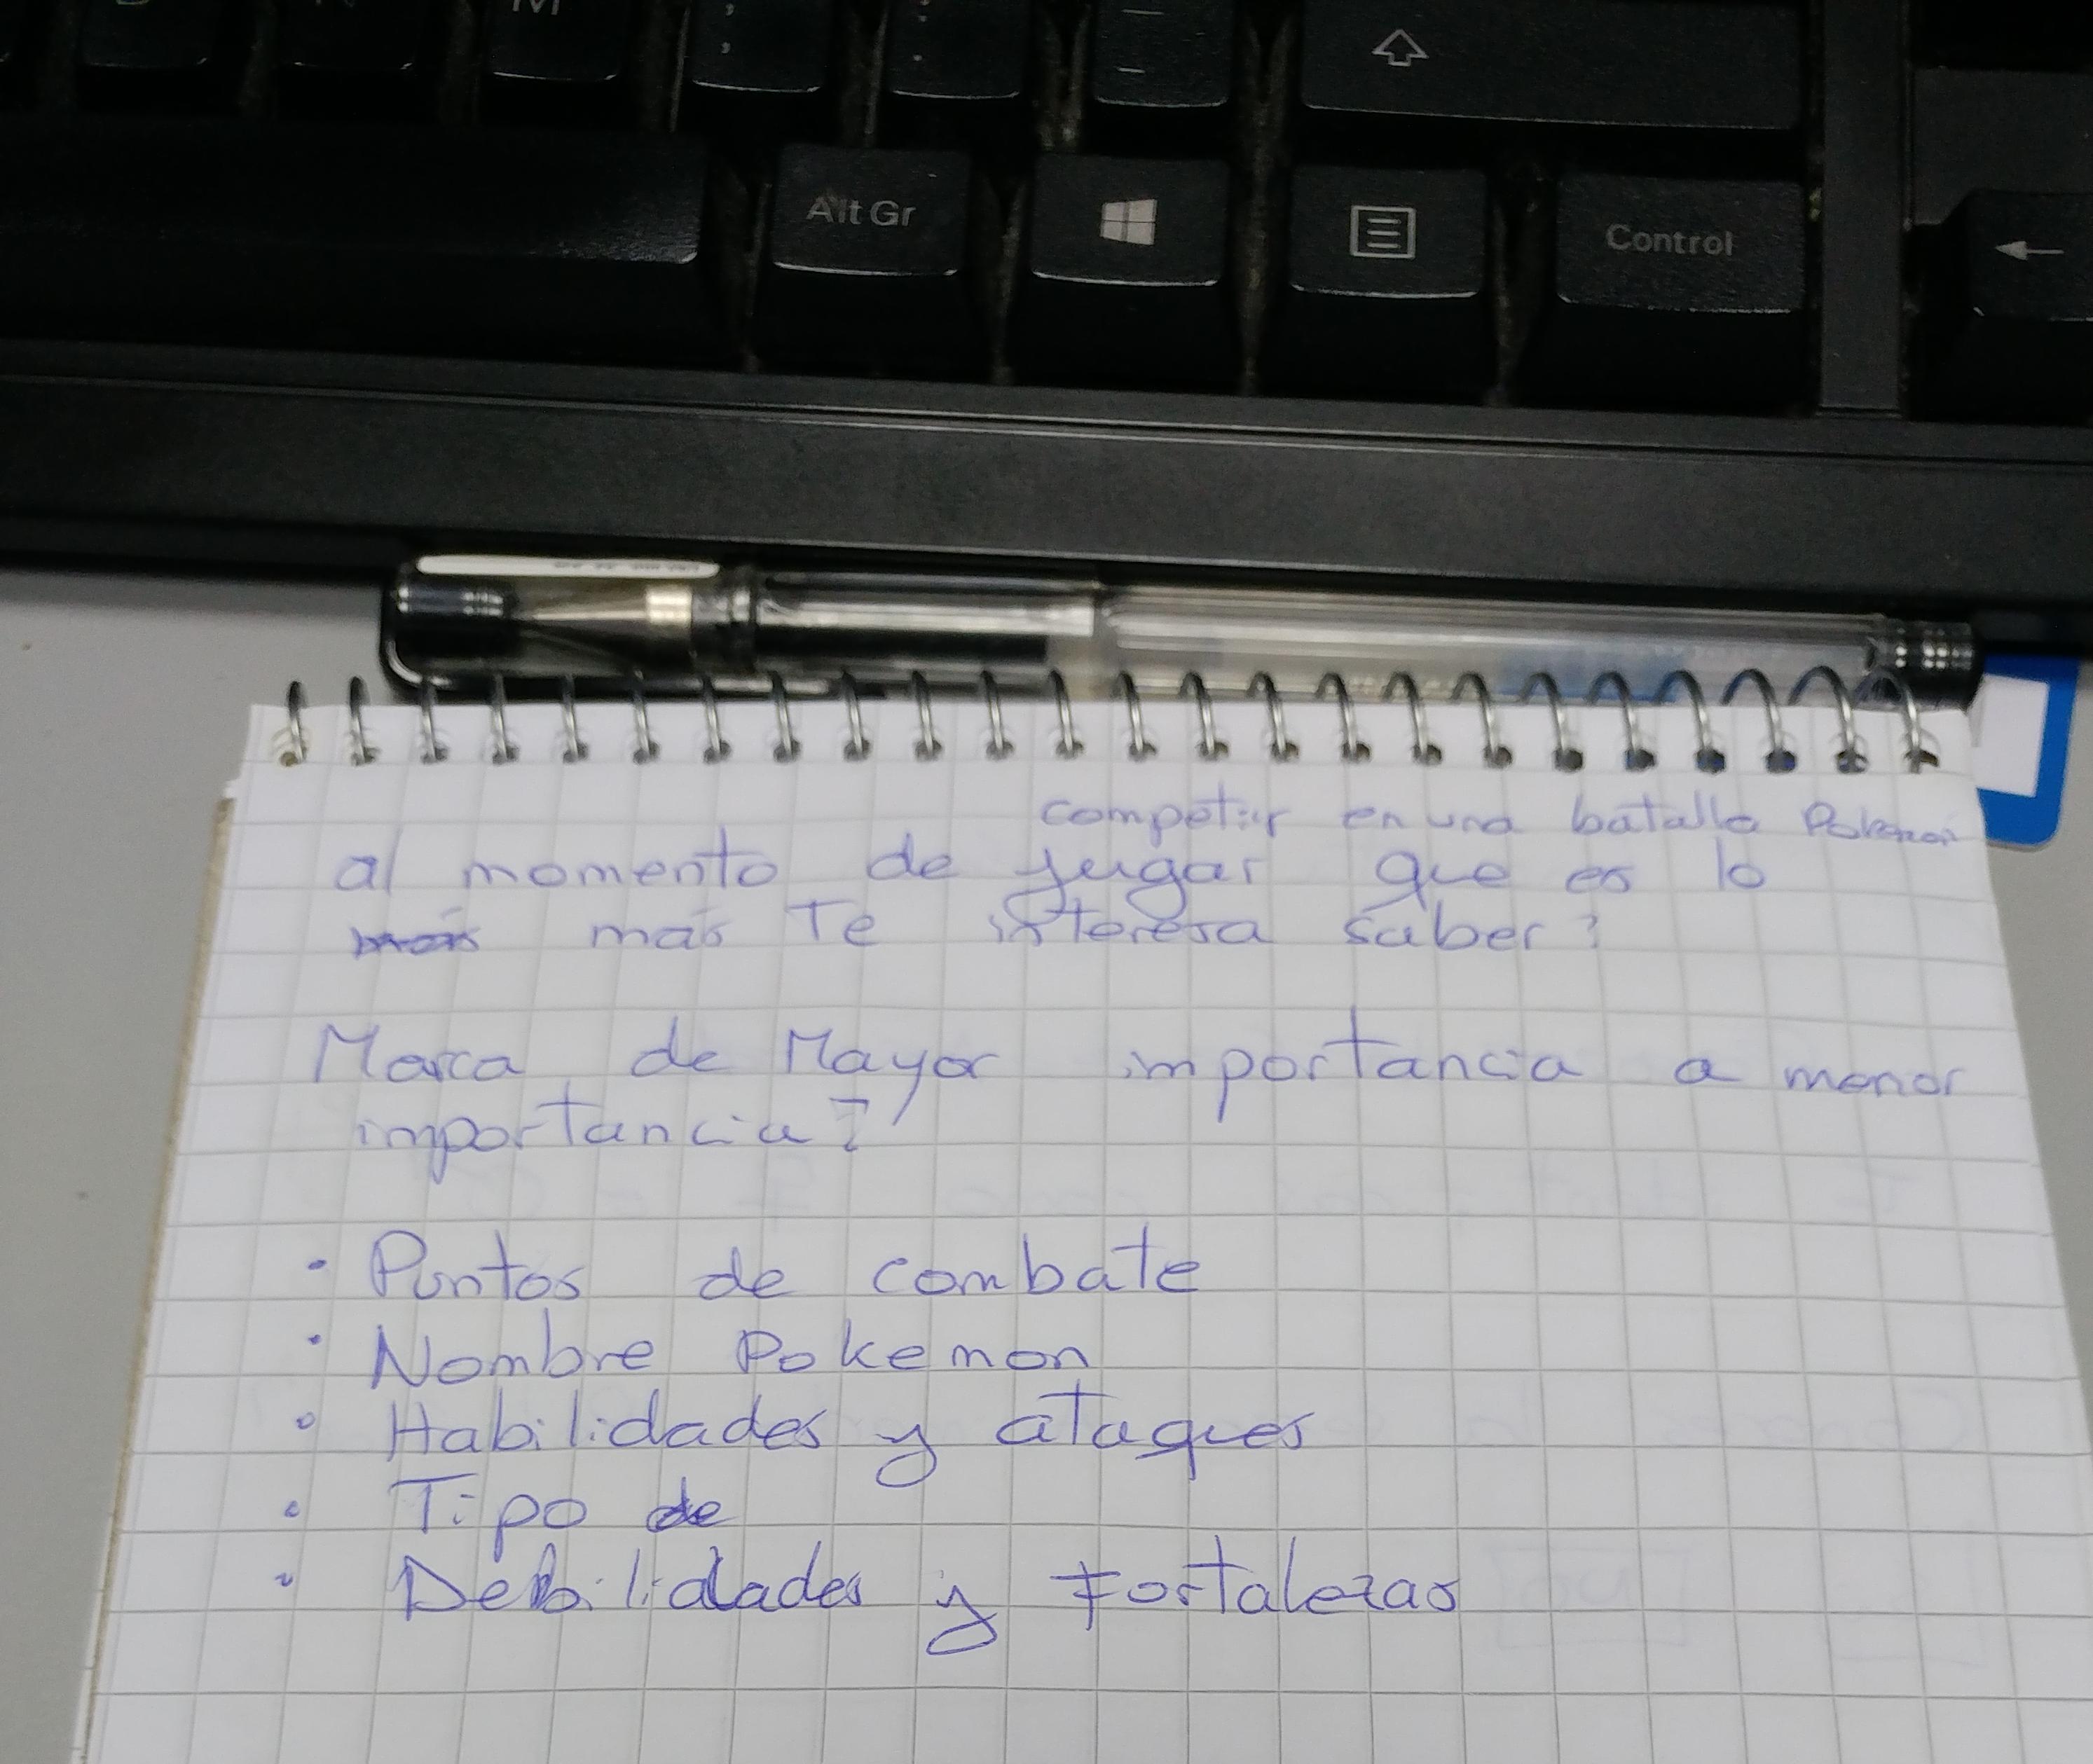 M
Alt Gr
Control
competir en una batalla Pokemon
al momento de jugar que es lo
mas mas Te interesa saber?
Marca de Mayor importancia a menor
importancia?
• Puntos de combate
• Nombre Pokemon
• Habilidades y ataques
• Tipo de
• Debilidades y Fortalezas